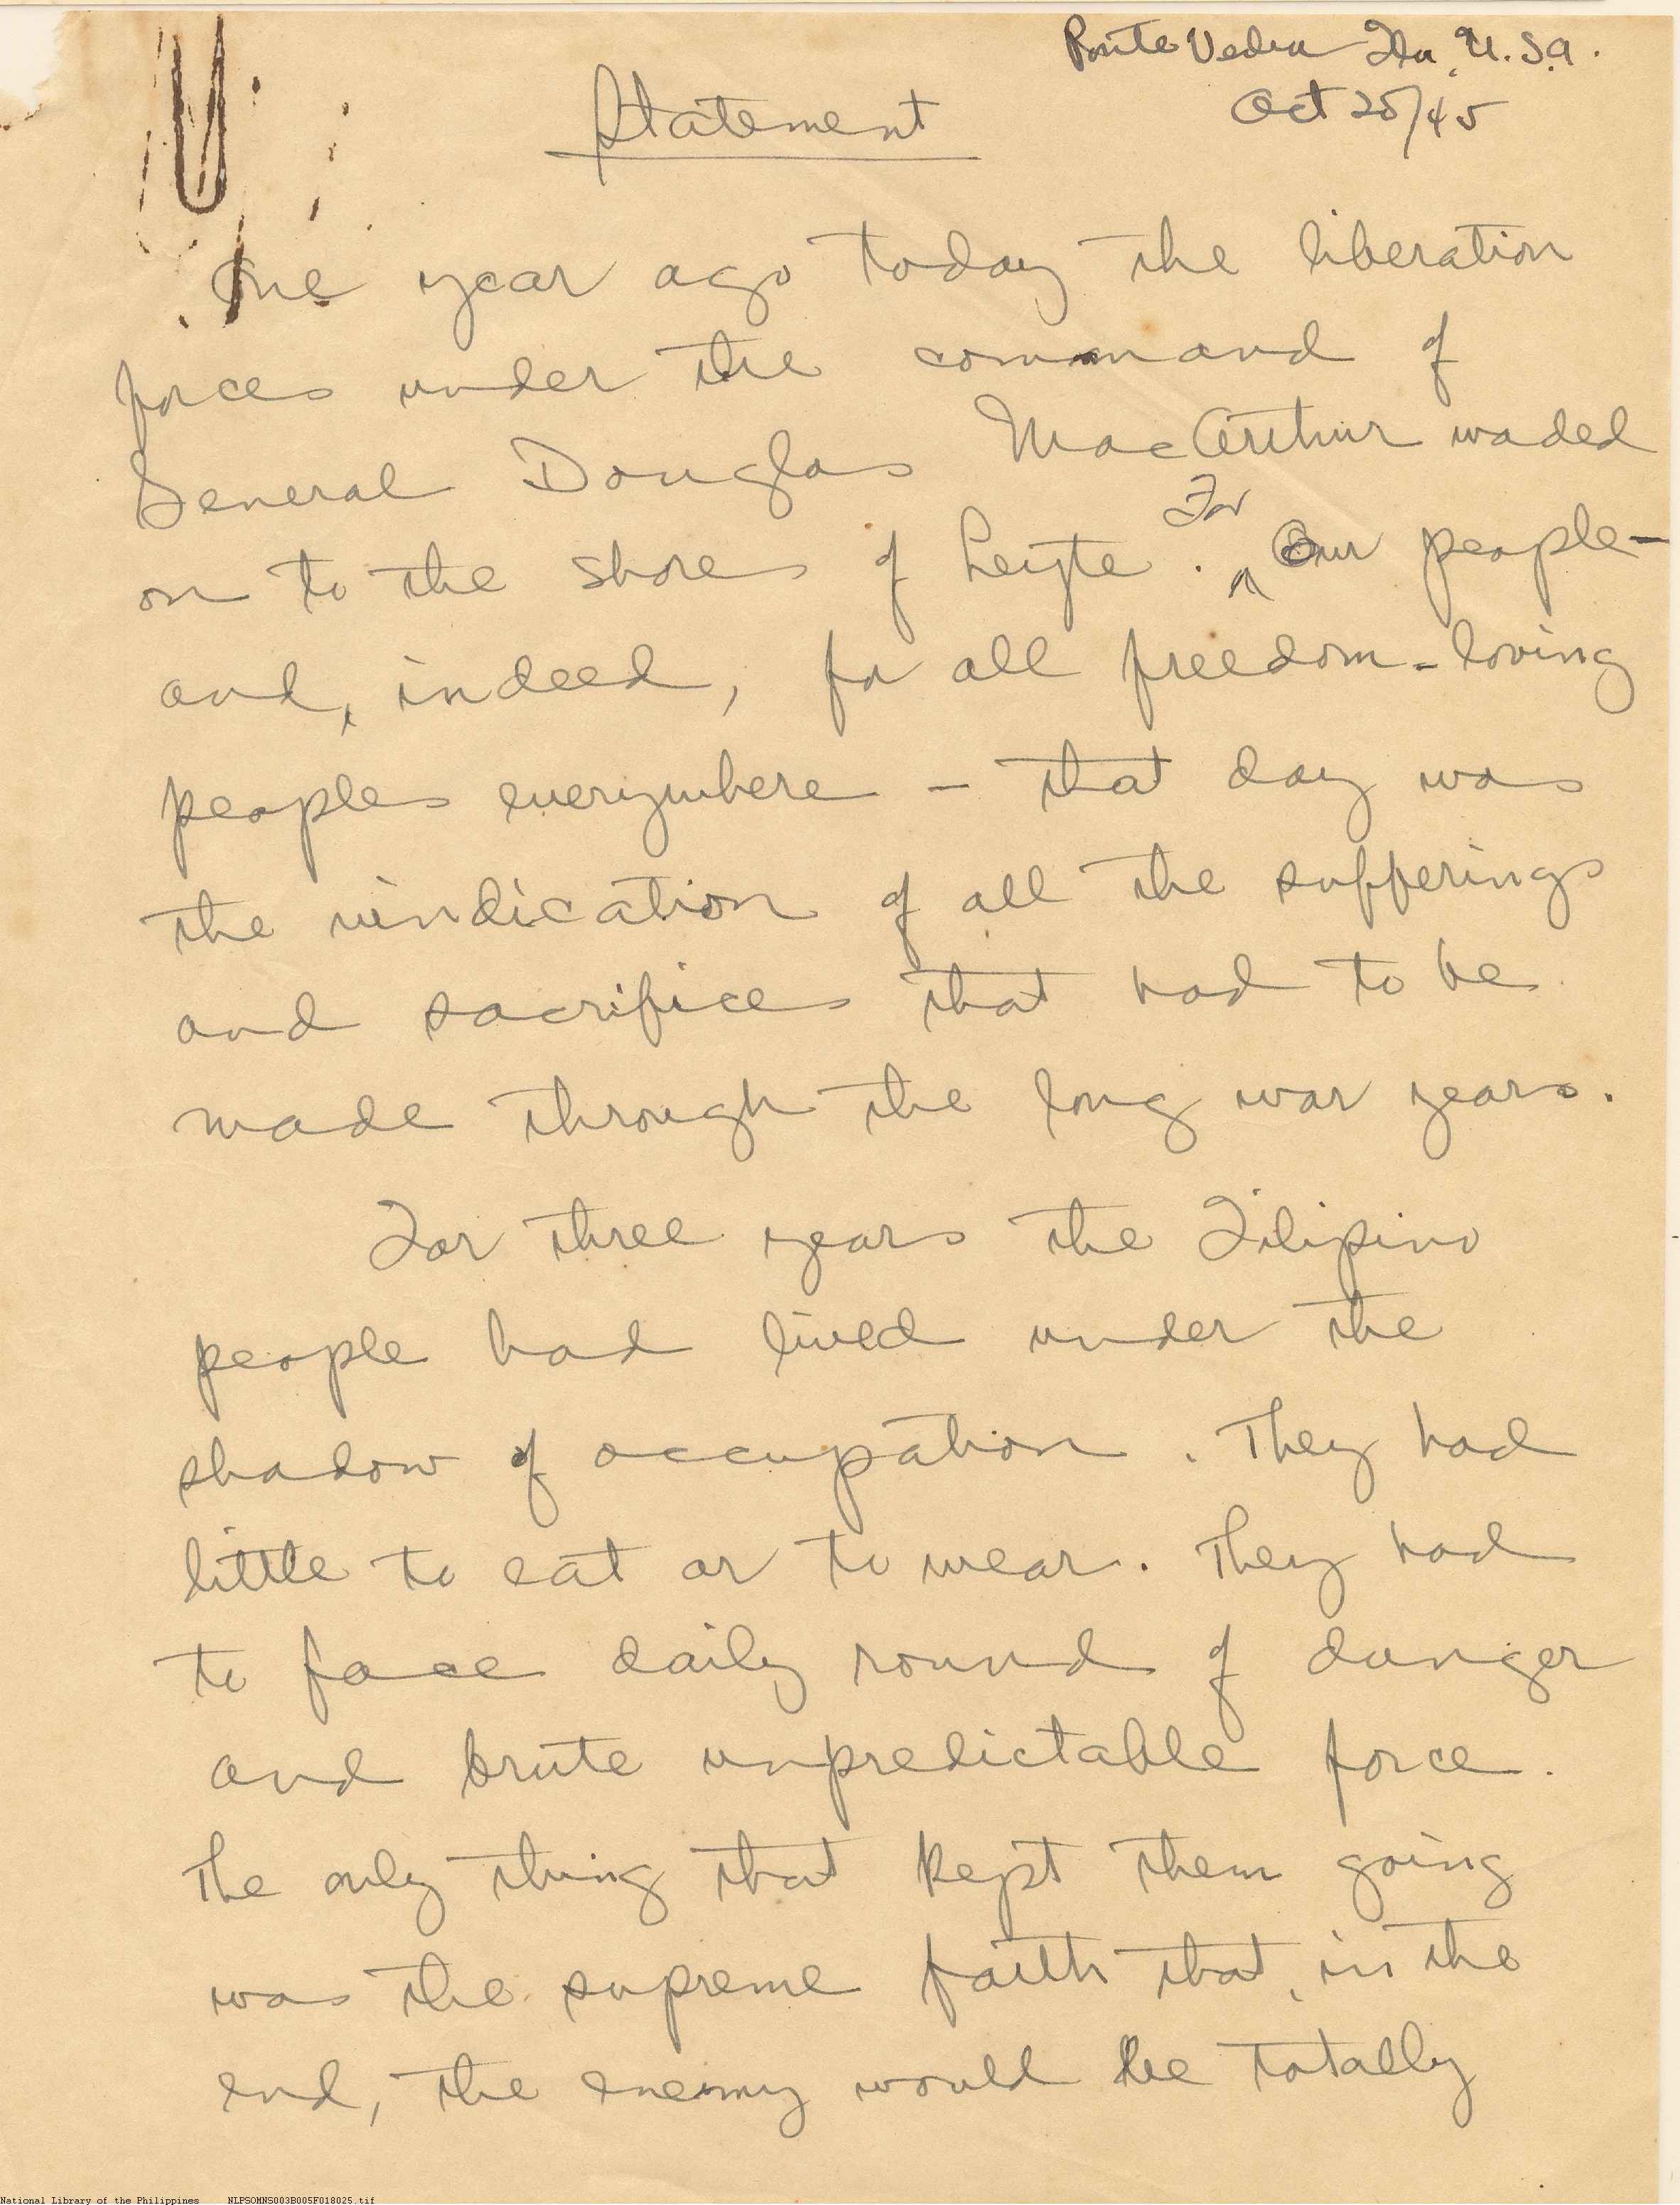 Ponte Vedra Fla. U.S.A.
Oct 20/45
Statement
One year ago today the liberation
forces under the command of
General Douglas MacArthur waded
on to the shores of Leyte. For Our people—
and, indeed, for all freedom-loving
peoples everywhere — that day was
the vindication of all the sufferings
and sacrifices that had to be
made through the long war years.
For three years the Filipino
people had lived under the
shadow of occupation. They had
little to eat or to wear. They had
to face daily round of danger
and brute unpredictable force.
The only thing that kept them going
was the supreme faith that, in the
end, the enemy would be totally
National Library of the Philippines NLPSOMNS003B005F018025.tif